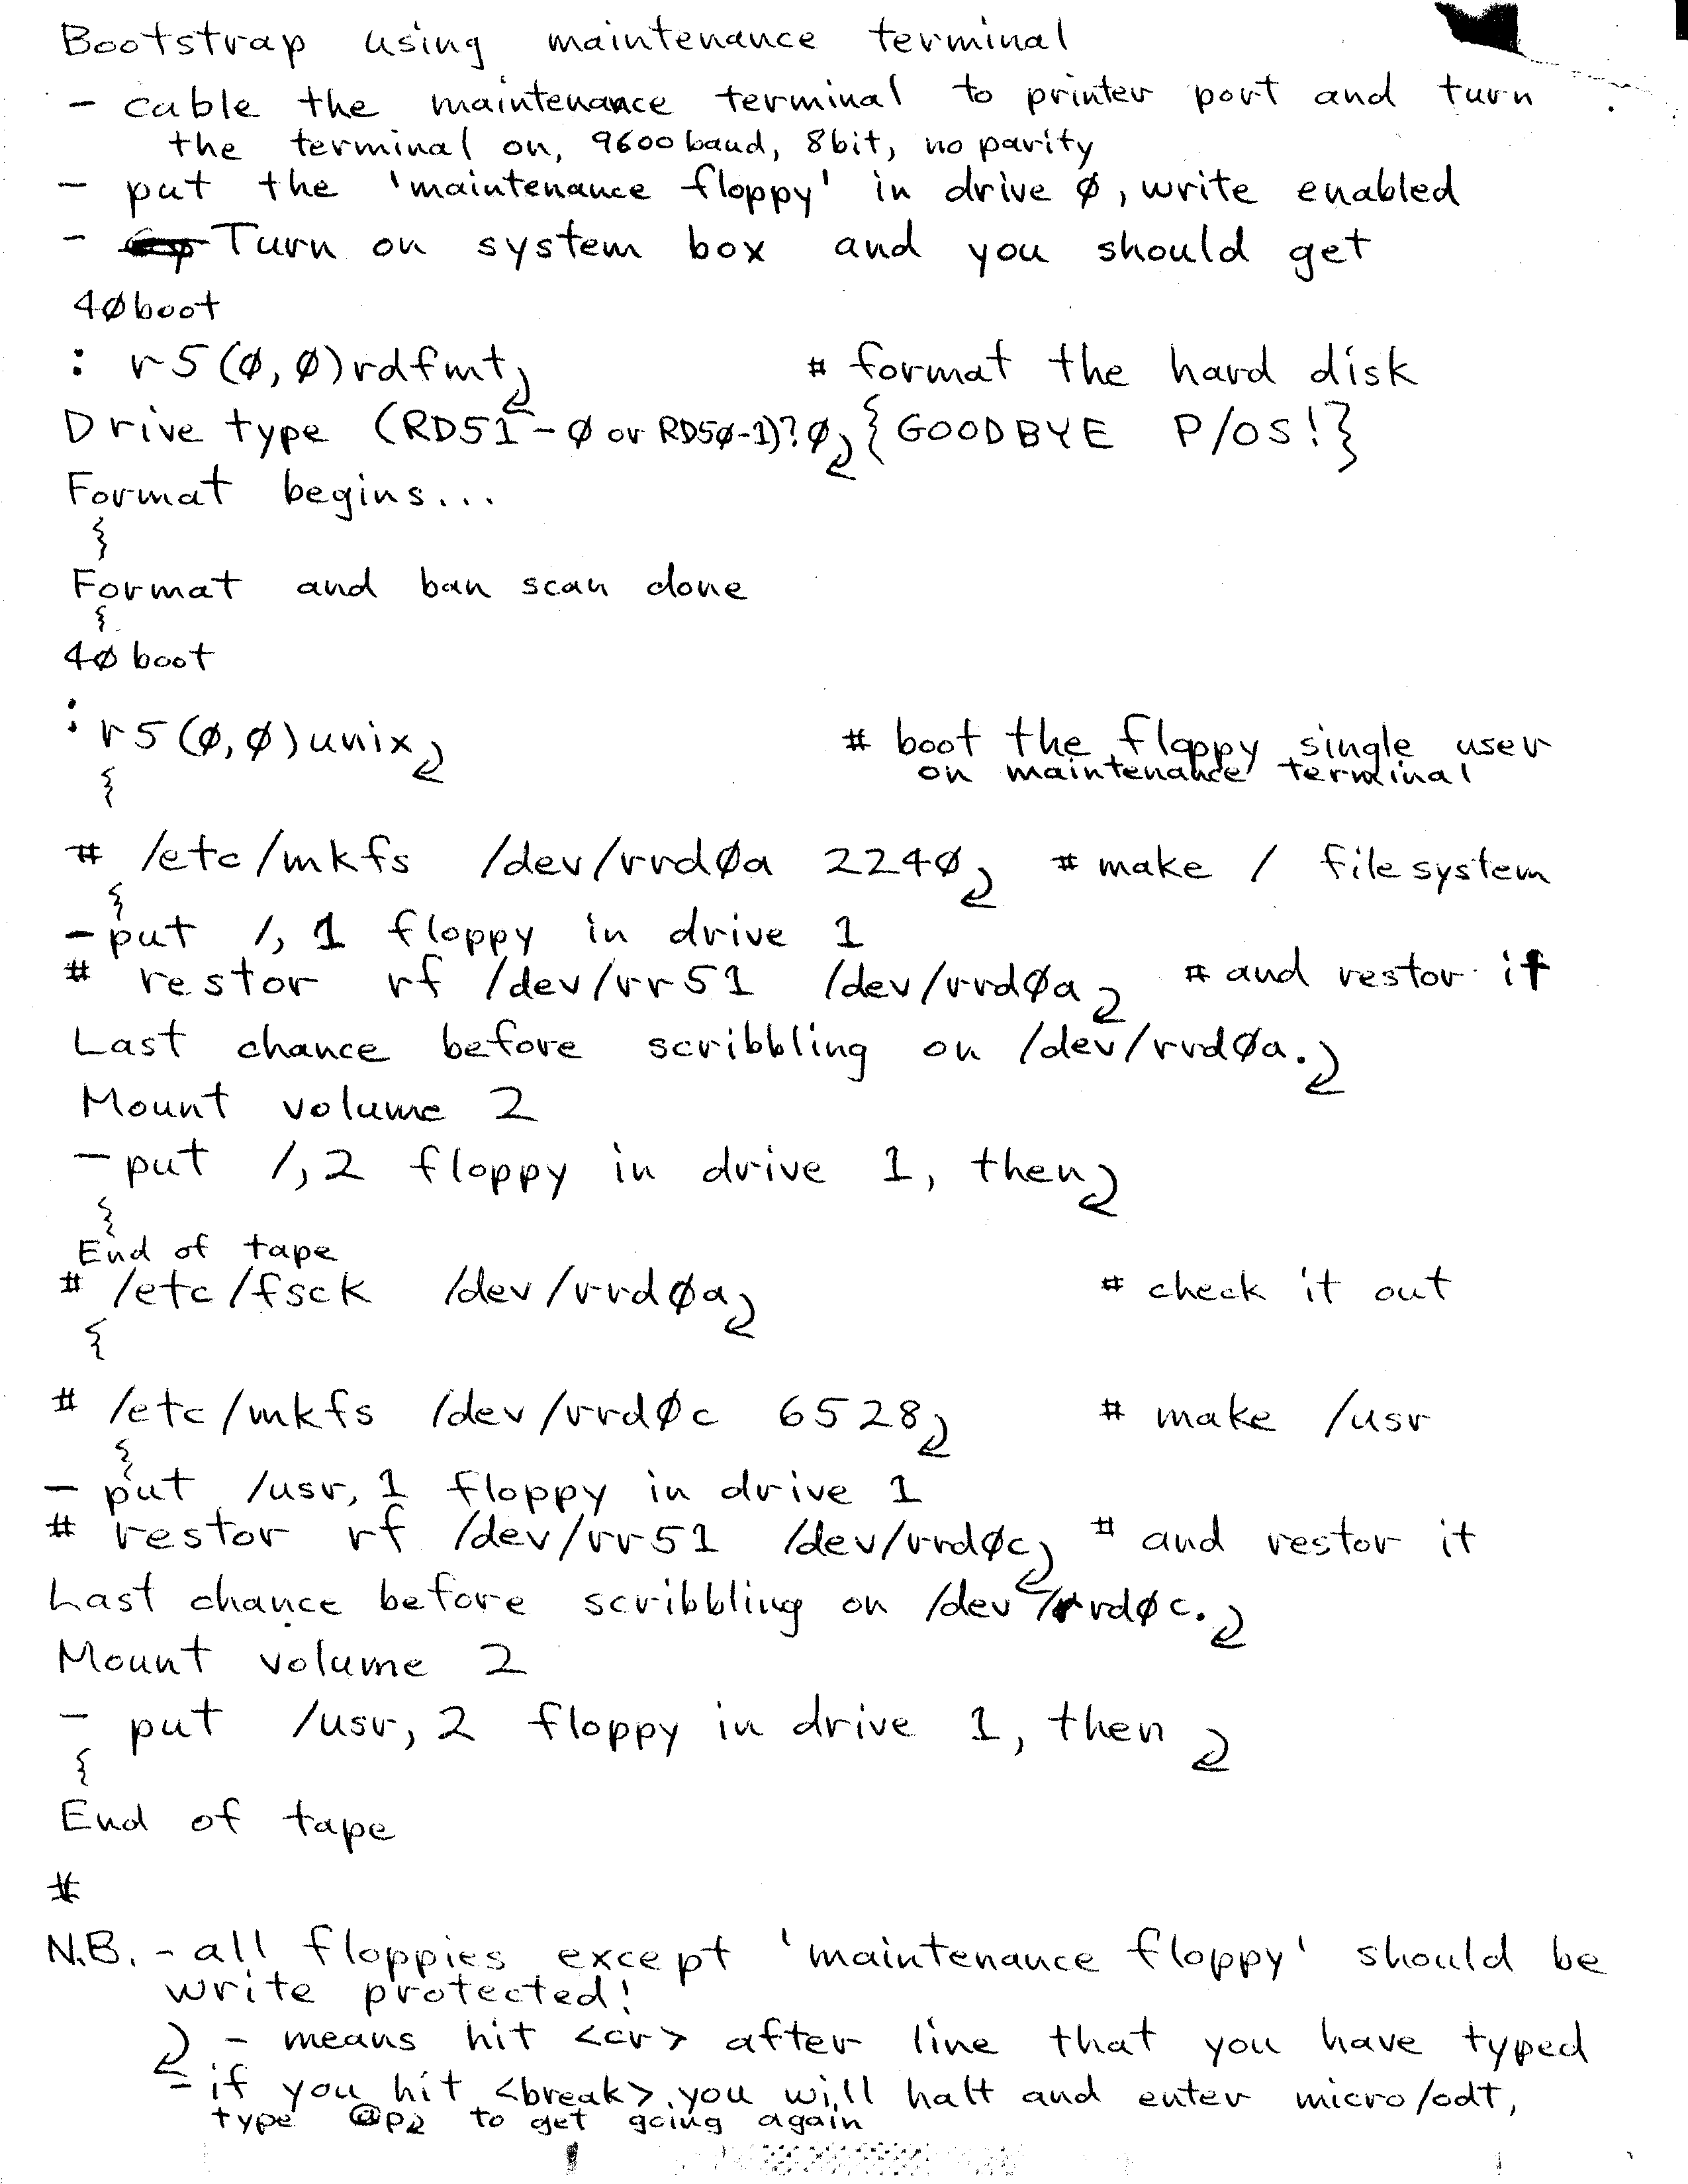 Bootstrap using maintenance terminal
- cable the maintenance terminal to printer port and turn
the terminal on, 9600 baud, 8bit, no parity
- put the 'maintenance floppy' in drive Ø, write enabled
- Turn on system box and you should get
4Øboot
: r5(Ø,Ø)rdfmt⤶ # format the hard disk
Drive type (RD51-Ø or RD5Ø-1)?Ø⤶ {GOODBYE P/OS!}
Format begins...
Format and ban scan done
4Øboot
: r5(Ø,Ø)unix⤶ # boot the floppy single user
on maintenance terminal
# /etc/mkfs /dev/rrdØa 224Ø⤶ # make / filesystem
- put /, 1 floppy in drive 1
# restor rf /dev/rr51 /dev/rrdØa⤶ # and restor it
Last chance before scribbling on /dev/rrdØa.⤶
Mount volume 2
- put /, 2 floppy in drive 1, then⤶
End of tape
# /etc/fsck /dev/rrdØa⤶ # check it out
# /etc/mkfs /dev/rrdØc 6528⤶ # make /usr
- put /usr, 1 floppy in drive 1
# restor rf /dev/rr51 /dev/rrdØc⤶ # and restor it
Last chance before scribbling on /dev/rrdØc.⤶
Mount volume 2
- put /usr, 2 floppy in drive 1, then ⤶
End of tape
#
N.B. - all floppies except 'maintenance floppy' should be
write protected!
⤶ - means hit <cr> after line that you have typed
- if you hit <break> you will halt and enter micro/odt,
type @p⤶ to get going again